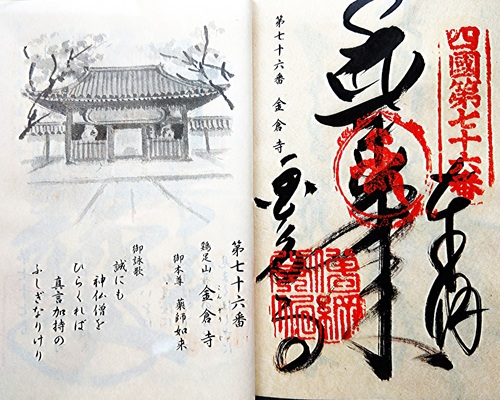 四國第七十六番
奉納
金倉寺
第七十六番 金倉寺
第七十六番
鶏足山 金倉寺
御本尊 薬師如来
御詠歌
誠にも
神仏僧を
ひらくれば
真言加持の
ふしぎなりけり